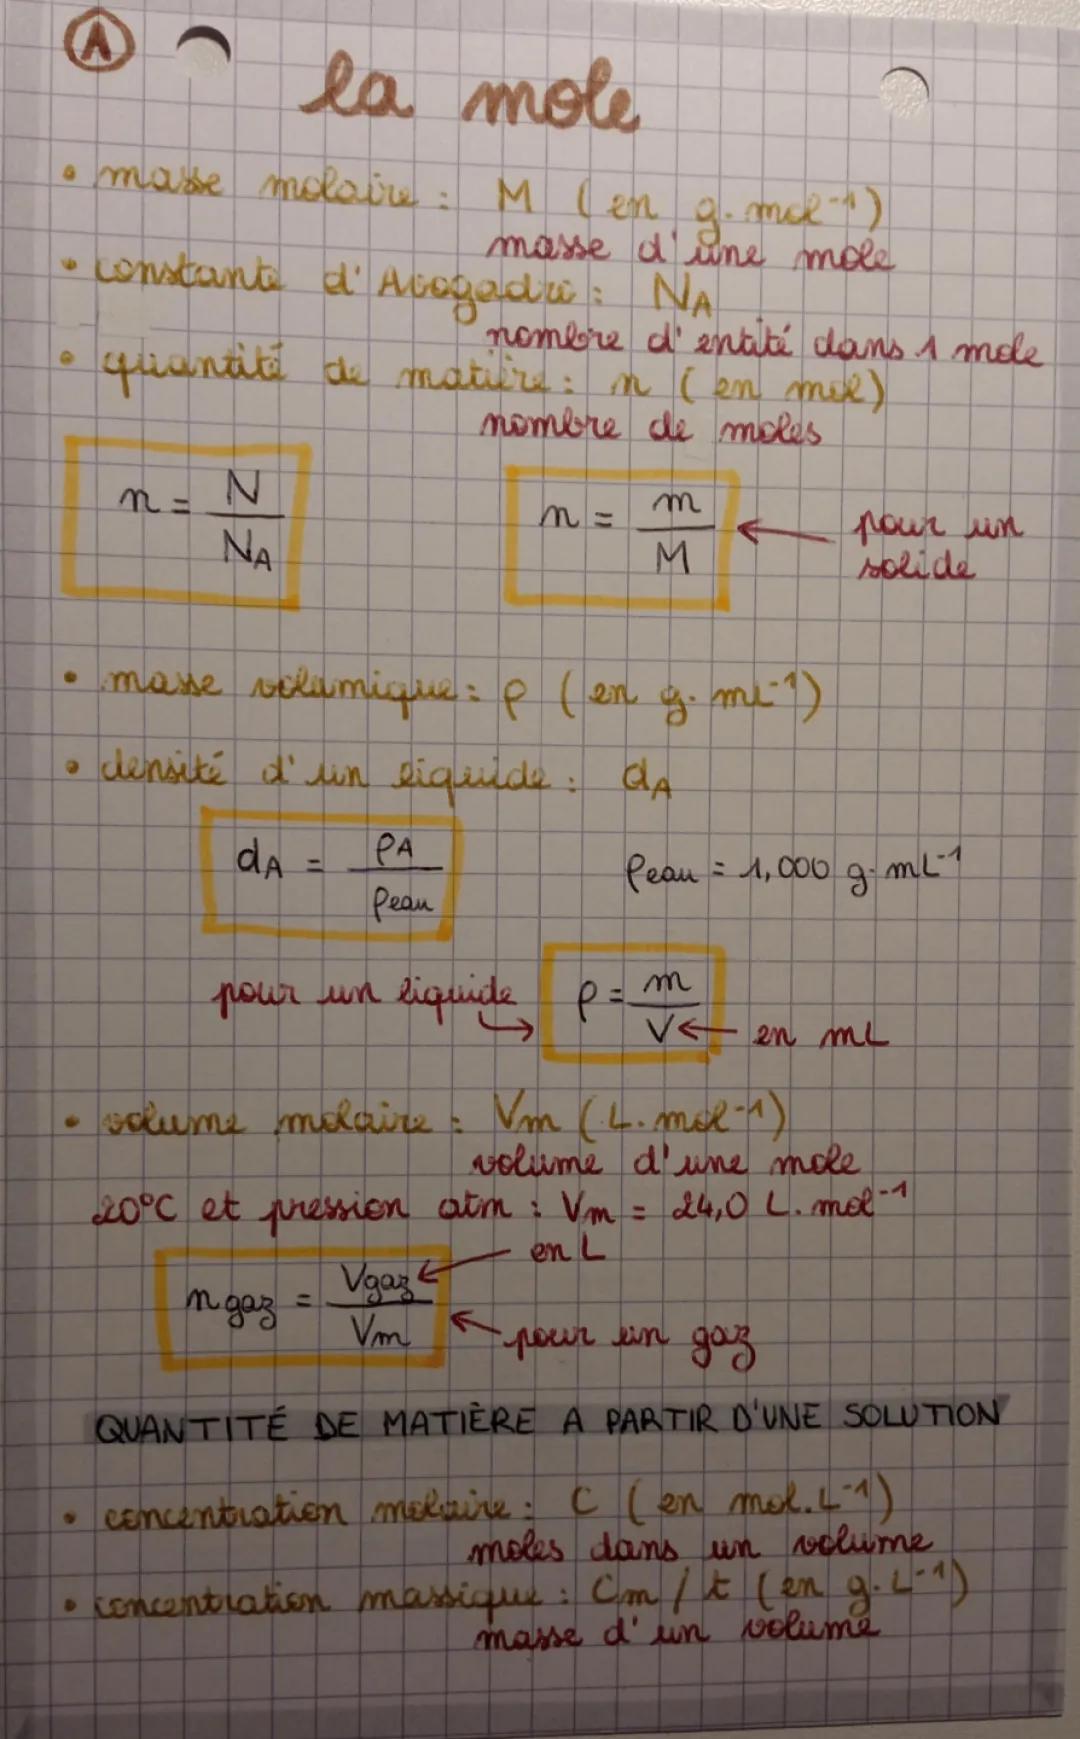 A
la mole
• masse molaire : M (en g.mol⁻¹)
masse d'une mole
• constante d'Avogadro : NA
nombre d'entité dans 1 mole
• quantité de matière : n (en mol)
nombre de moles
n = N / NA
n = m / M ← pour un solide
• masse volumique : ρ (en g.mL⁻¹)
• densité d'un liquide : dA
dA = ρA / ρeau
ρeau = 1,000 g.mL⁻¹
pour un liquide → ρ = m / V ← en mL
• volume molaire : Vm (L.mol⁻¹)
volume d'une mole
20°C et pression atm : Vm = 24,0 L.mol⁻¹
n gaz = Vgaz / Vm
← en L
← pour un gaz
QUANTITÉ DE MATIÈRE A PARTIR D'UNE SOLUTION
• concentration molaire : C (en mol.L⁻¹)
moles dans un volume
• concentration massique : Cm / t (en g.L⁻¹)
masse d'un volume